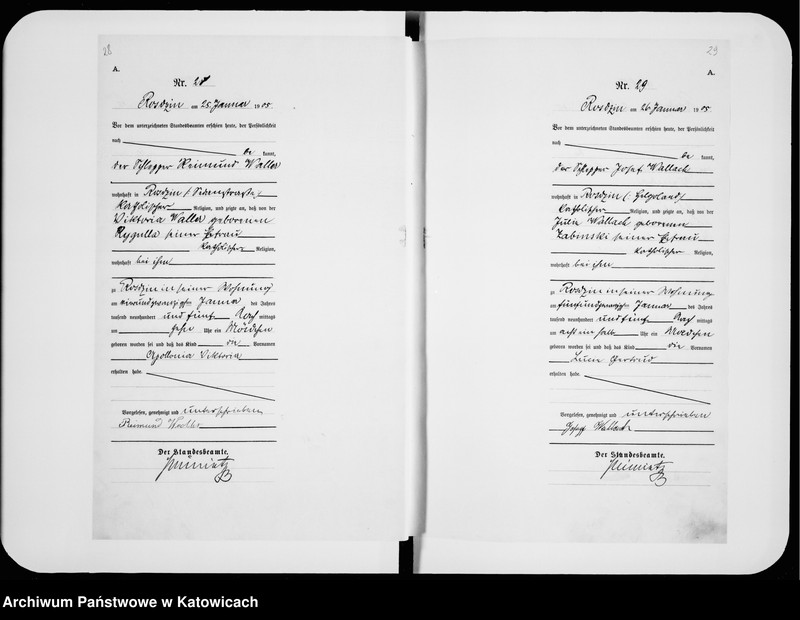 28
A.
Nr. 28
Rosdzin am 25 Januar 1905
Vor dem unterzeichneten Standesbeamten erschien heute, der Persönlichkeit
nach
be kannt,
der Schlepper Reimund Waller
wohnhaft in Rosdzin /
katholischer Religion, und zeigte an, daß von der
Viktoria Waller geborenen
Rygulla seiner Ehefrau
katholischer Religion,
wohnhaft bei ihm
zu Rosdzin in seiner Wohnung
am einundzwanzigsten Januar des Jahres
tausend neunhundert und fünf Nach mittags
um zehn Uhr ein Mädchen
geboren worden sei und daß das Kind die Vornamen
Apollonia Viktoria
erhalten habe.
Vorgelesen, genehmigt und unterschrieben
Reimund Waller
Der Standesbeamte.
29
A.
Nr. 29
Rosdzin am 26 Januar 1905
Vor dem unterzeichneten Standesbeamten erschien heute, der Persönlichkeit
nach
be kannt,
der Schlepper Josef Wallach
wohnhaft in Rosdzin (Helgoland)
katholischer Religion, und zeigte an, daß von der
Julie Wallach geborenen
Zabinski seiner Ehefrau
katholischer Religion,
wohnhaft bei ihm
zu Rosdzin in seiner Wohnung
am fünfundzwanzigsten Januar des Jahres
tausend neunhundert und fünf Nach mittags
um acht ein halb Uhr ein Mädchen
geboren worden sei und daß das Kind die Vornamen
Lucie Gertrud
erhalten habe.
Vorgelesen, genehmigt und unterschrieben
Josef Wallach
Der Standesbeamte.
Archiwum Państwowe w Katowicach